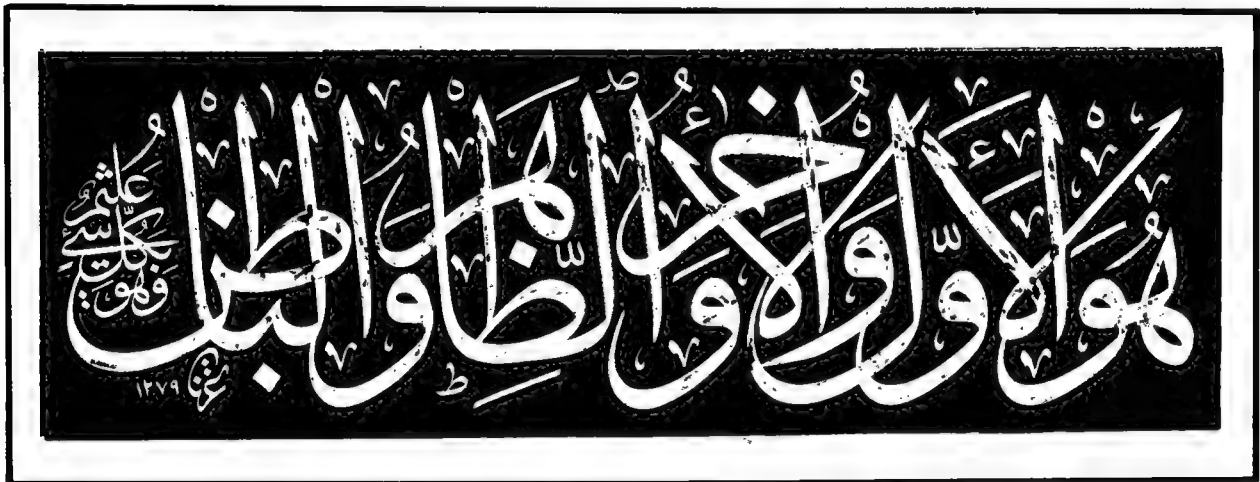 هُوَ الْأَوَّلُ وَالْآخِرُ وَالظَّاهِرُ وَالْبَاطِنُ
وَهُوَ بِكُلِّ شَيْءٍ عَلِيمٌ
عزت
١٢٧٩